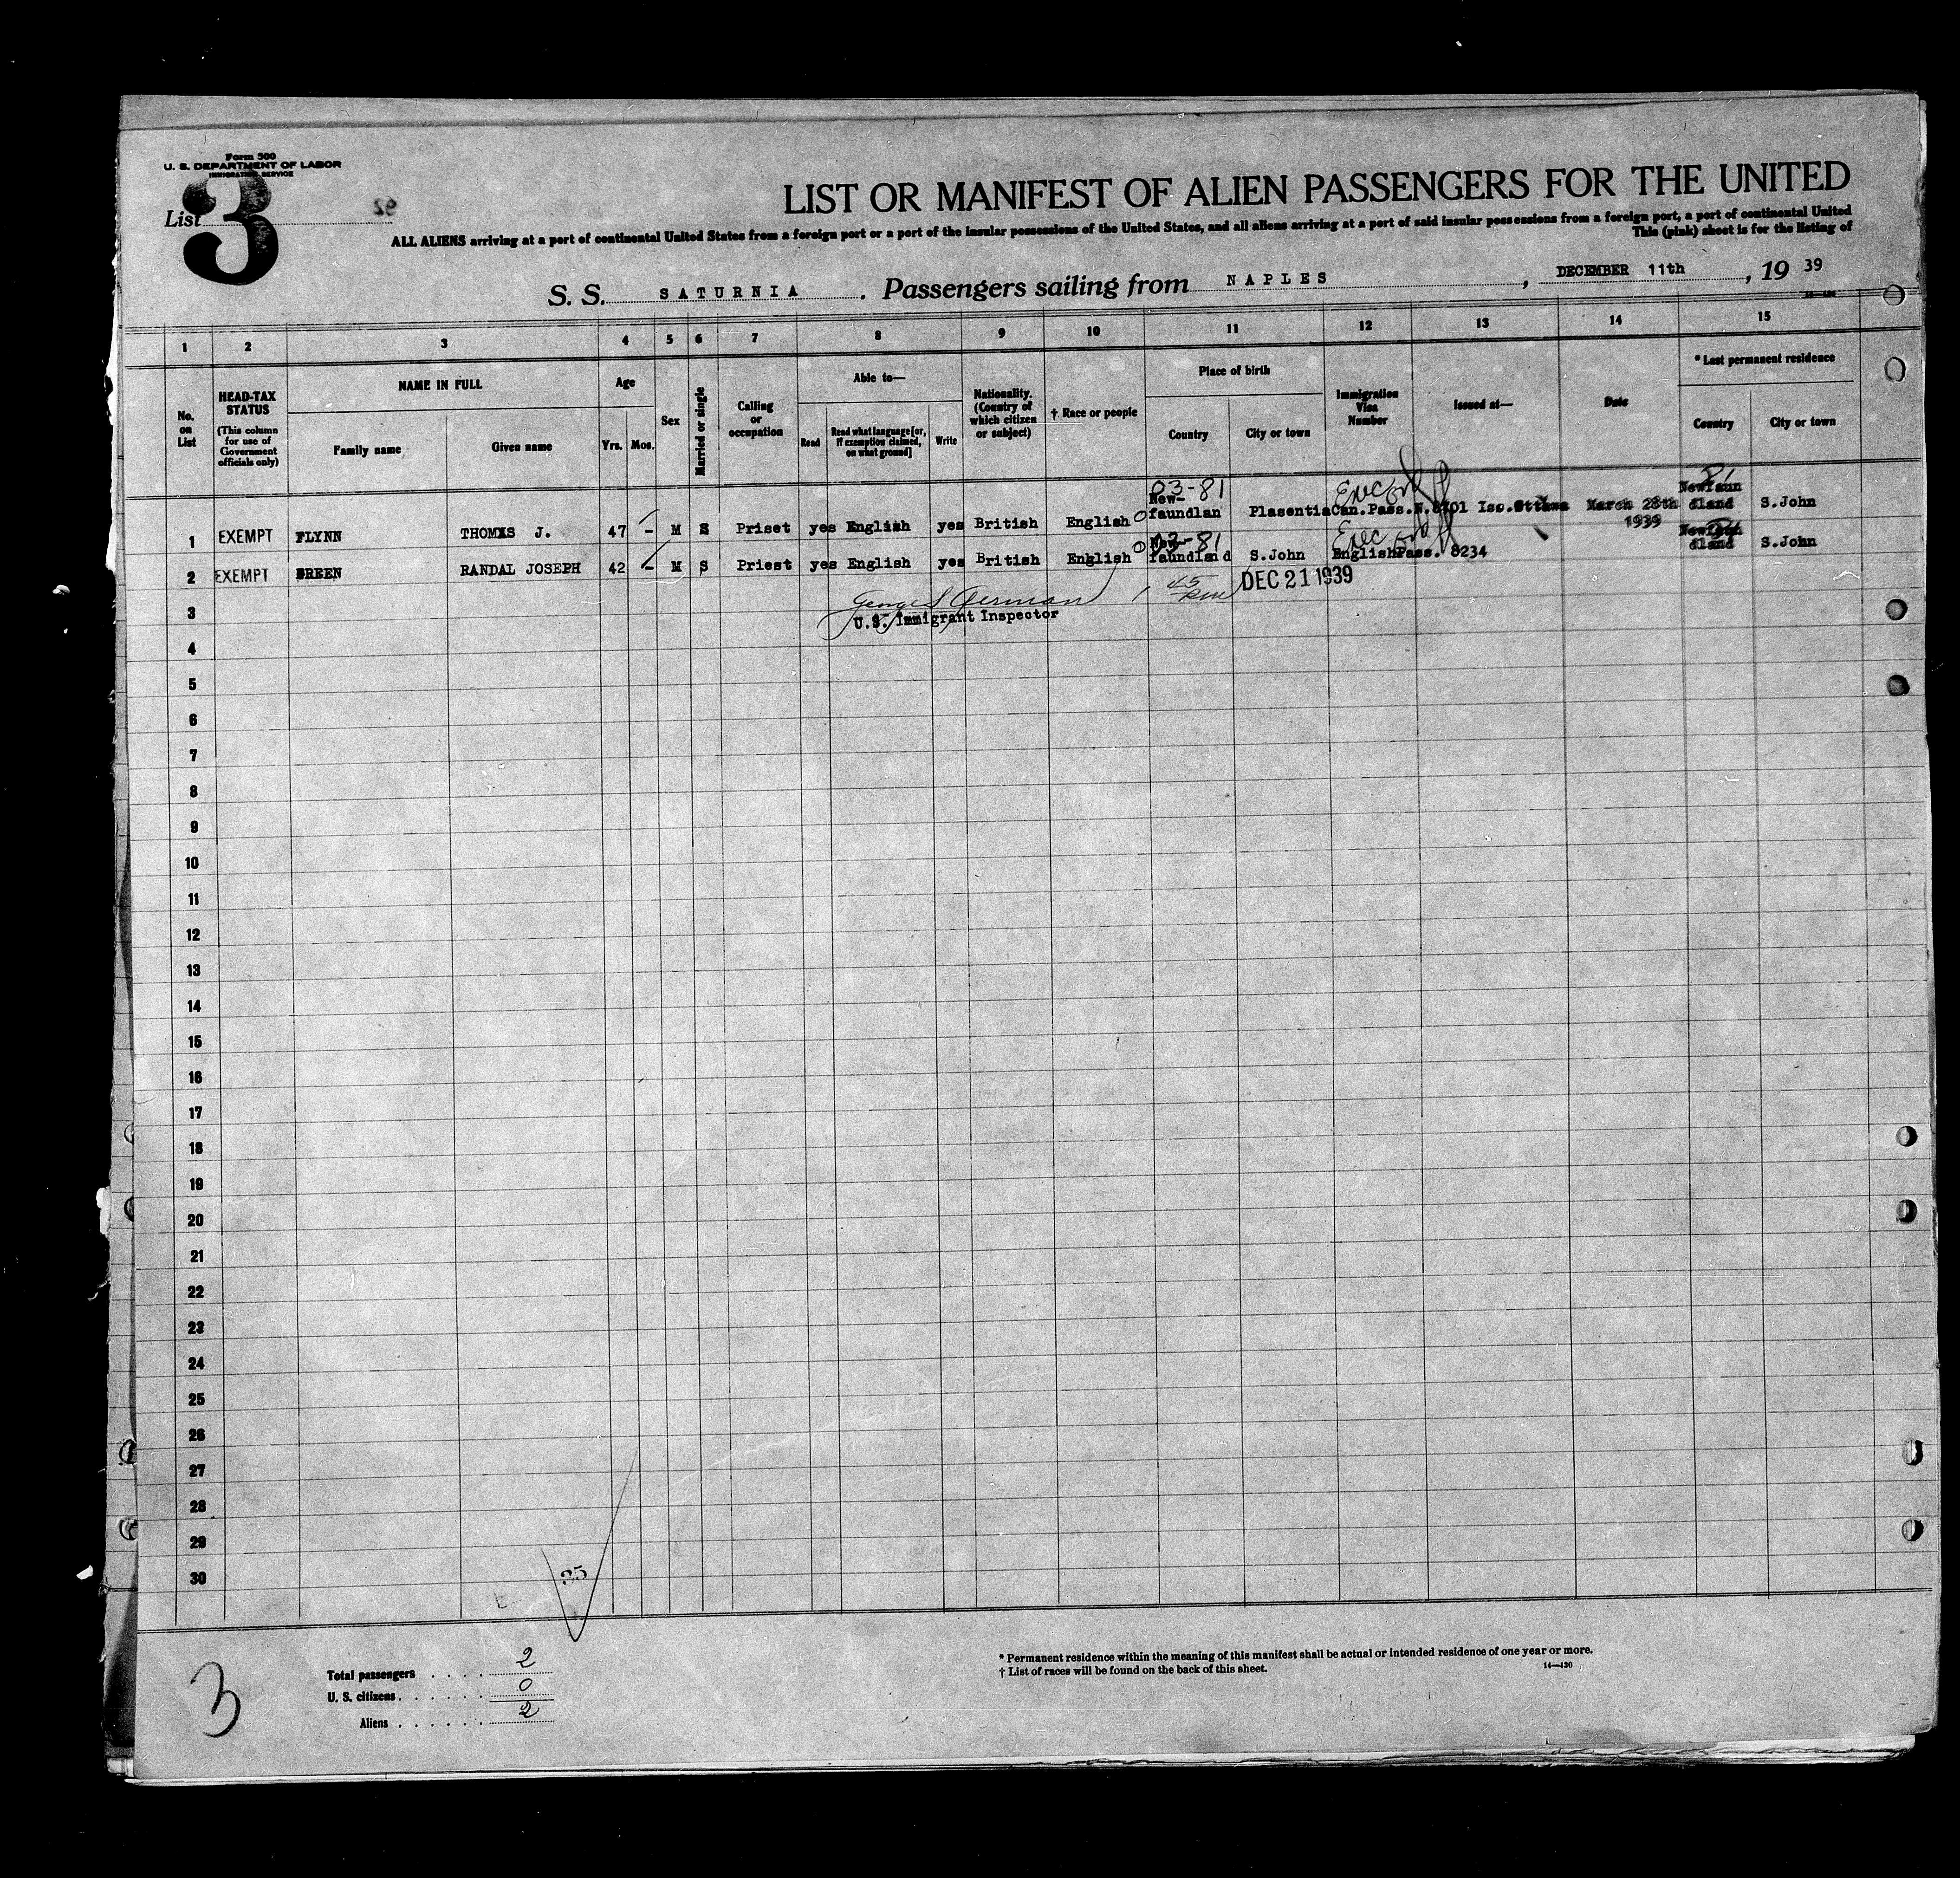 Form 500
U. S. DEPARTMENT OF LABOR
IMMIGRATION SERVICE
List 3
LIST OR MANIFEST OF ALIEN PASSENGERS FOR THE UNITED
ALL ALIENS arriving at a port of continental United States from a foreign port or a port of the insular possessions of the United States, and all aliens arriving at a port of said insular possessions from a foreign port, a port of continental United
This (pink) sheet is for the listing of
S. S. SATURNIA . Passengers sailing from NAPLES , DECEMBER 11th , 19 39
1 2 3 4 5 6 7 8 9 10 11 12 13 14 15
No. on List
HEAD-TAX STATUS (This column for use of Government officials only)
NAME IN FULL
Family name
Given name
Age
Yrs. Mos.
Sex
Married or single
Calling or occupation
Able to—
Read
Read what language [or, if exemption claimed, on what ground]
Write
Nationality. (Country of which citizen or subject)
† Race or people
Place of birth
Country
City or town
Immigration Visa Number
Issued at—
Date
* Last permanent residence
Country
City or town
03-81
1 EXEMPT FLYNN THOMAS J. 47 - M S Priset yes English yes British English New- faundlan Plasentia Can.Pass.N. Iss.Ottawa March 28th 1939 Newfaun dland S.John
03-81
2 EXEMPT BREEN RANDAL JOSEPH 42 - M S Priest yes English yes British English New- faundland S.John EnglishPass. 8234 dland S.John
DEC 21 1939
3 U.S. Immigrant Inspector
4
5
6
7
8
9
10
11
12
13
14
15
16
17
18
19
20
21
22
23
24
25
26
27
28
29
30
Total passengers . . . . 2
U. S. citizens . . . . . . 0
Aliens . . . . . . 2
3
* Permanent residence within the meaning of this manifest shall be actual or intended residence of one year or more.
† List of races will be found on the back of this sheet.
14—430